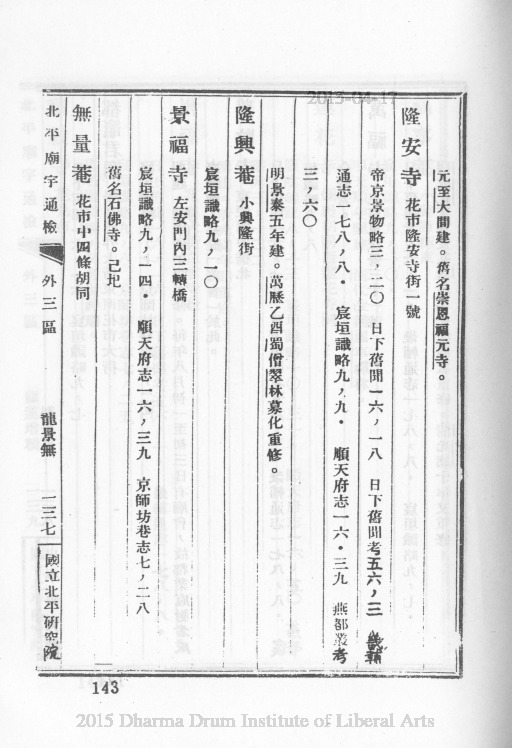 2015-04-17
元至大間建。舊名崇恩福元寺。
隆安寺 花市隆安寺街一號
帝京景物略三，二〇 日下舊聞一六，一八 日下舊聞考五六，三 畿輔
通志一七八，八． 宸垣識略九，九． 順天府志一六．三九 燕都叢考
三，六〇
明景泰五年建。萬曆乙酉蜀僧翠林募化重修。
隆興菴 小興隆街
宸垣識略九，一〇
景福寺 左安門內三轉橋
宸垣識略九，一四． 順天府志一六，三九 京師坊巷志七，二八
舊名石佛寺。己圯
無量菴 花市中四條胡同
北平廟宇通檢 外三區 龍景無 一三七 國立北平研究院
143
2015 Dharma Drum Institute of Liberal Arts